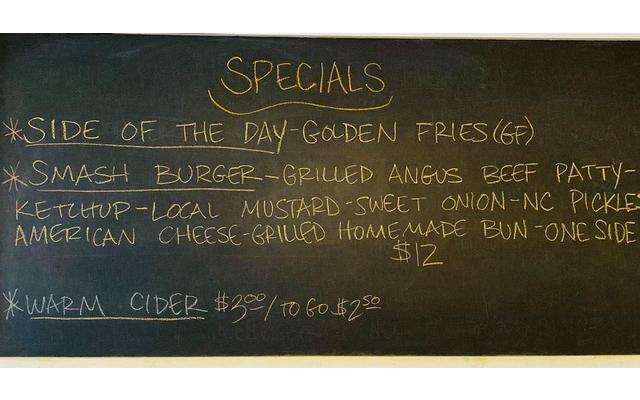 SPECIALS
*SIDE OF THE DAY-GOLDEN FRIES(GF)
*SMASH BURGER-GRILLED ANGUS BEEF PATTY-
KETCHUP-LOCAL MUSTARD-SWEET ONION-NC PICKLES
AMERICAN CHEESE-GRILLED HOMEMADE BUN-ONE SIDE
$12
*WARM CIDER $3.00/TO GO $2.50